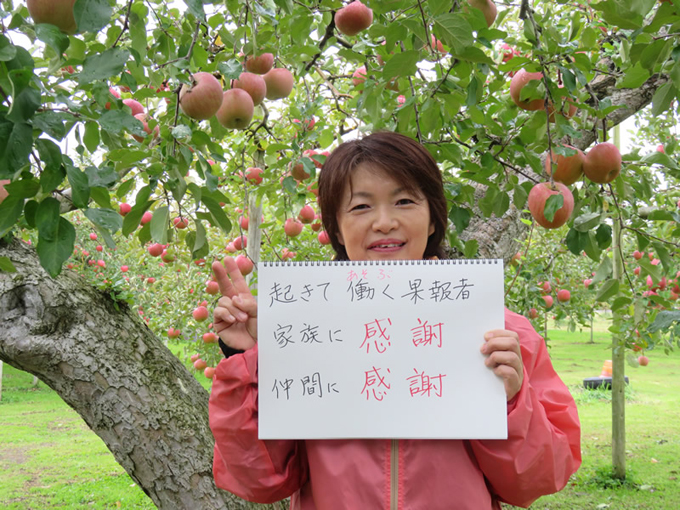 あそ ぶ
起きて 働く果報者
家族に 感謝
仲間に 感謝